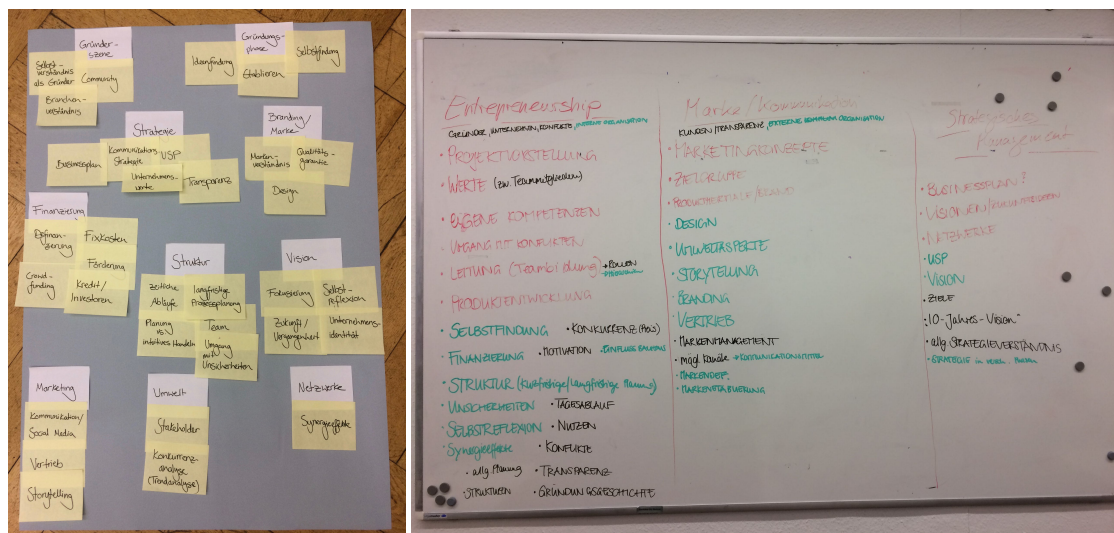 Gründer-
szene
Selbst-
verständnis
als Gründer
Community
Branchen-
verständnis
Gründungs-
phase
Ideenfindung
Etablieren
Selbstfindung
Strategie
Businessplan
Kommunikations
Strategie
USP
Unternehmens-
werte
Transparenz
Branding/
Marke
Marken-
verständnis
Qualitäts-
garantie
Design
Finanzierung
Fixkosten
Förderung
Crowd-
funding
Kredit/
Investoren
Struktur
zeitliche
Abläufe
langfristige
Prozessplanung
Planung
vs
intuitives Handeln
Team
Umgang
mit
Unsicherheiten
Vision
Fokussierung
Selbst-
reflexion
Zukunft/
Vergangenheit
Unternehmens-
identität
Marketing
Kommunikation/
Social Media
Vertrieb
Storytelling
Umwelt
Stakeholder
Konkurrenz-
analyse
(Trendanalyse)
Netzwerke
Synergieeffekte
Entrepreneurship
GRÜNDER, UNTERNEHMEN, KONFLIKTE, INTERNE ORGANISATION
• PROJEKTVORSTELLUNG
• WERTE (zw. Teammitgliedern)
• EIGENE KOMPETENZEN
• UMGANG MIT KONFLIKTEN
• LEITUNG (Teambildung) → ROLLEN
• PRODUKTENTWICKLUNG
• SELBSTFINDUNG • KONKURRENZ
• FINANZIERUNG • MOTIVATION
• STRUKTUR (kurzfristige/langfristige Planung)
• UNSICHERHEITEN • TAGESABLAUF
• SELBSTREFLEXION • NUTZEN
• Synergieeffekte • KONFLIKTE
• allg. Planung • TRANSPARENZ
• STRUKTUREN • GRÜNDUNGSGESCHICHTE
Marke/Kommunikation
KUNDEN/TRANSPARENZ, EXTERNE KOMMUNIKATION
• MARKETINGKONZEPTE
• ZIELGRUPPE
• DESIGN
• UMWELTASPEKTE
• STORYTELLING
• BRANDING
• VERTRIEB
• MARKENMANAGEMENT
• mögl. Kanäle → KOMMUNIKATIONSMITTEL
• MARKENDEF.
• MARKENETABLIERUNG
Strategisches
Management
• BUSINESSPLAN?
• VISIONEN/
• NETZWERKE
• USP
• VISION
• ZIELE
• "10-Jahres-Vision"
• allg. STRATEGIEVERSTÄNDNIS
• STRATEGIE in versch. Phasen